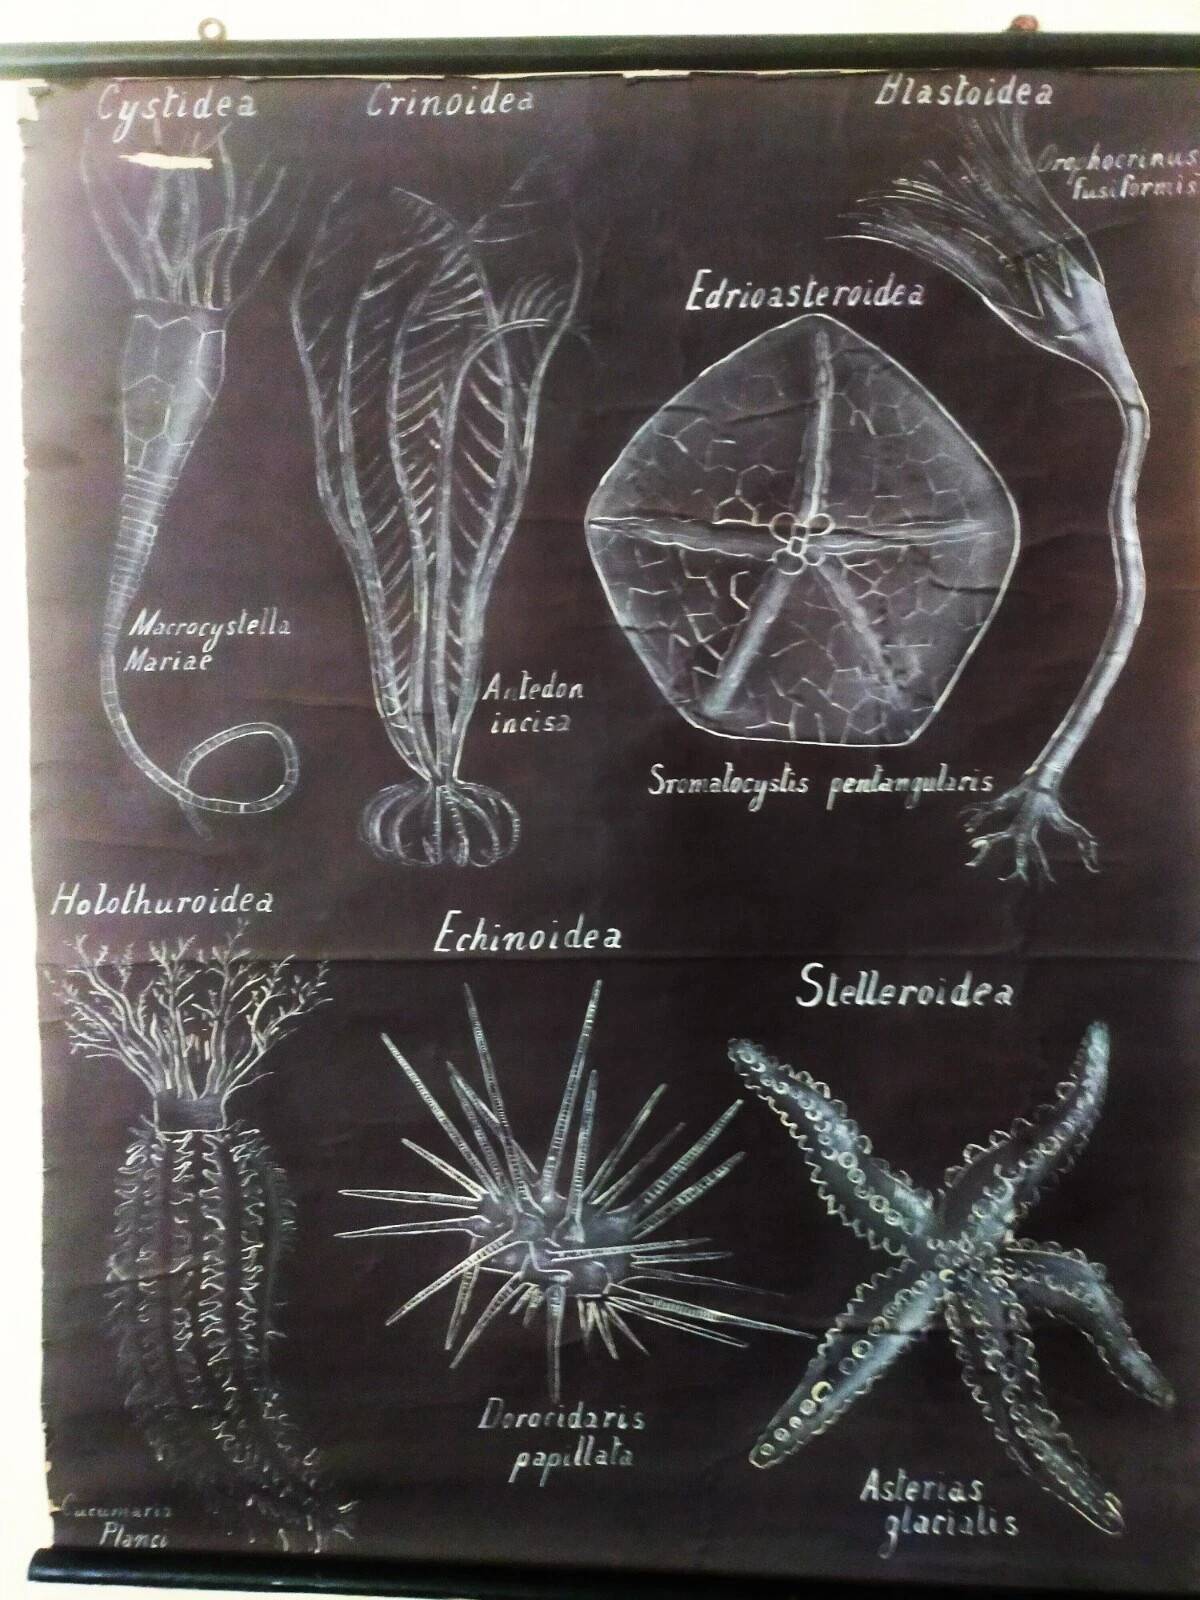 Cystidea
Crinoidea
Blastoidea
Orophocrinus
fusiformis
Edrioasteroidea
Macrocystella
Mariae
Antedon
incisa
Sromatocystis pentangularis
Holothuroidea
Echinoidea
Stelleroidea
Dorocidaris
papillata
Asterias
glacialis
Cucumaria
Planci